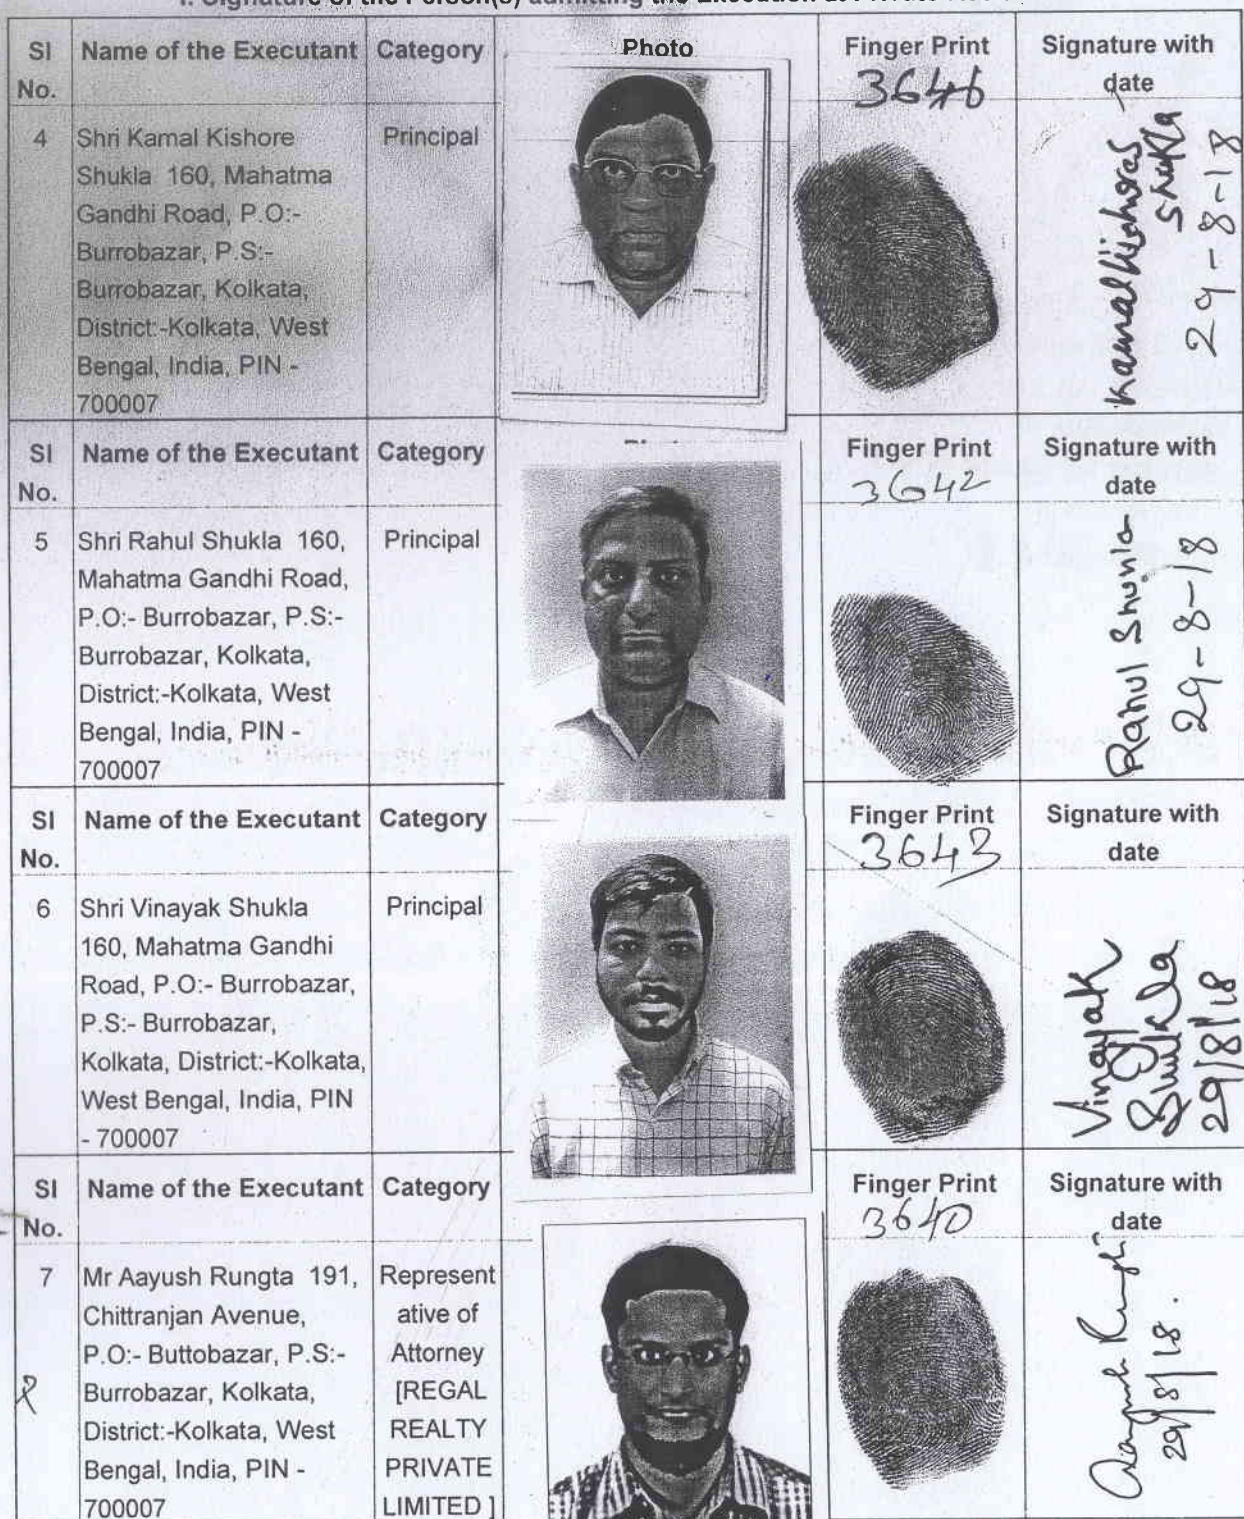 I. Signature of the Person(s) admitting the Execution at Private
Sl No. Name of the Executant Category Photo Finger Print Signature with date
3646
4 Shri Kamal Kishore Principal
Shukla 160, Mahatma
Gandhi Road, P.O:-
Burrobazar, P.S:-
Burrobazar, Kolkata,
District:-Kolkata, West
Bengal, India, PIN -
700007
Kamal Kishore
Shukla
29-8-18
Sl No. Name of the Executant Category Finger Print Signature with date
3642
5 Shri Rahul Shukla 160, Principal
Mahatma Gandhi Road,
P.O:- Burrobazar, P.S:-
Burrobazar, Kolkata,
District:-Kolkata, West
Bengal, India, PIN -
700007
Rahul Shukla
29-8-18
Sl No. Name of the Executant Category Finger Print Signature with date
3643
6 Shri Vinayak Shukla Principal
160, Mahatma Gandhi
Road, P.O:- Burrobazar,
P.S:- Burrobazar,
Kolkata, District:-Kolkata,
West Bengal, India, PIN
- 700007
Vinayak
Shukla
29/8/18
Sl No. Name of the Executant Category Finger Print Signature with date
3640
7 Mr Aayush Rungta 191,
Chittranjan Avenue,
P.O:- Buttobazar, P.S:-
Burrobazar, Kolkata,
District:-Kolkata, West
Bengal, India, PIN -
700007
Represent
ative of
Attorney
[REGAL
REALTY
PRIVATE
LIMITED ]
Aayush Rungta
29/8/18.